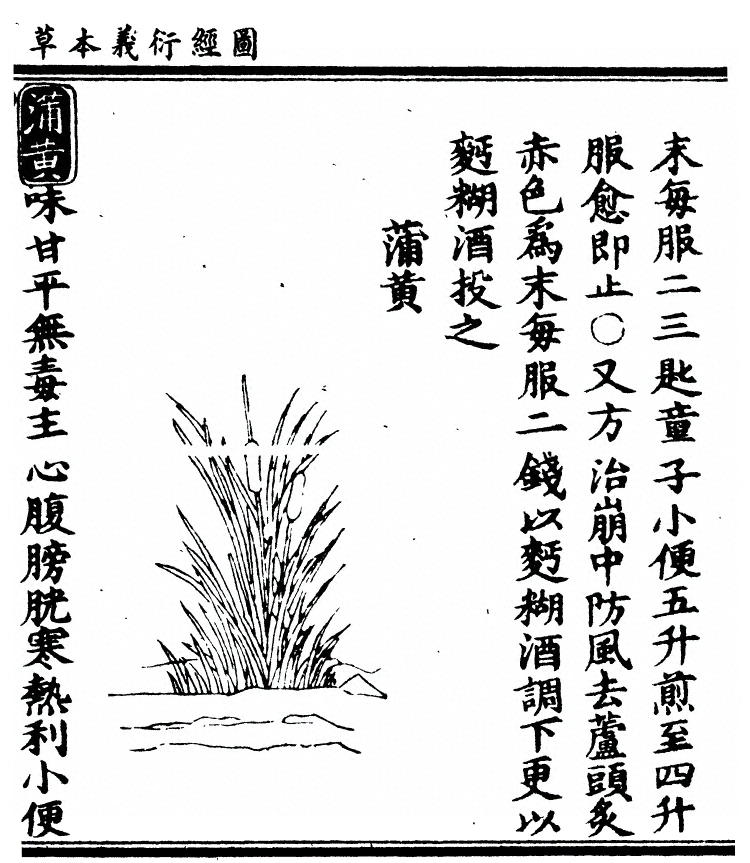 圖經衍義本草
末每服二三匙童子小便五升煎至四升
服愈即止○又方治崩中防風去蘆頭炙
赤色爲末每服二錢以麪糊酒調下更以
麪糊酒投之
蒲黃
蒲黃味甘平無毒主心腹膀胱寒熱利小便